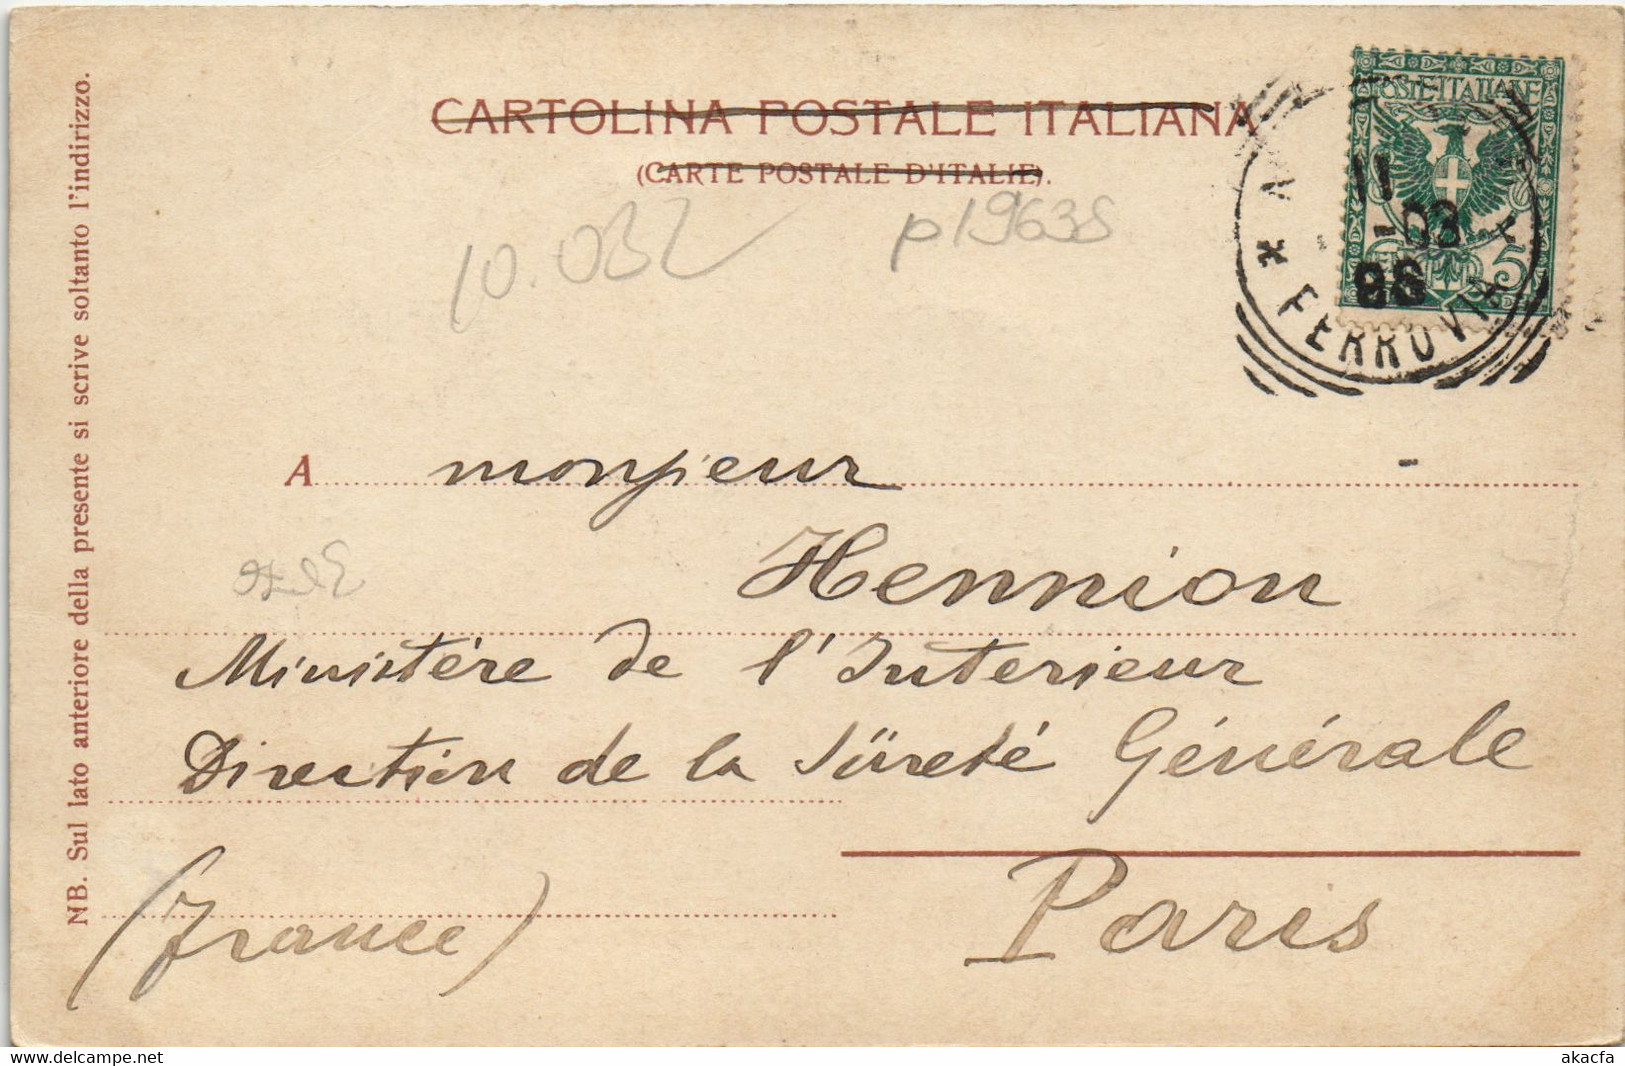 CARTOLINA POSTALE ITALIANA
(CARTE POSTALE D'ITALIE).
POSTE ITALIANE
5
11
-03
FERROVIA
10.032
p19635
NB. Sul lato anteriore della presente si scrive soltanto l'indirizzo.
A monsieur
Hennion
Ministère de l'Interieur
Direction de la Sûreté Générale
Paris
(France)
www.delcampe.net
akacfa